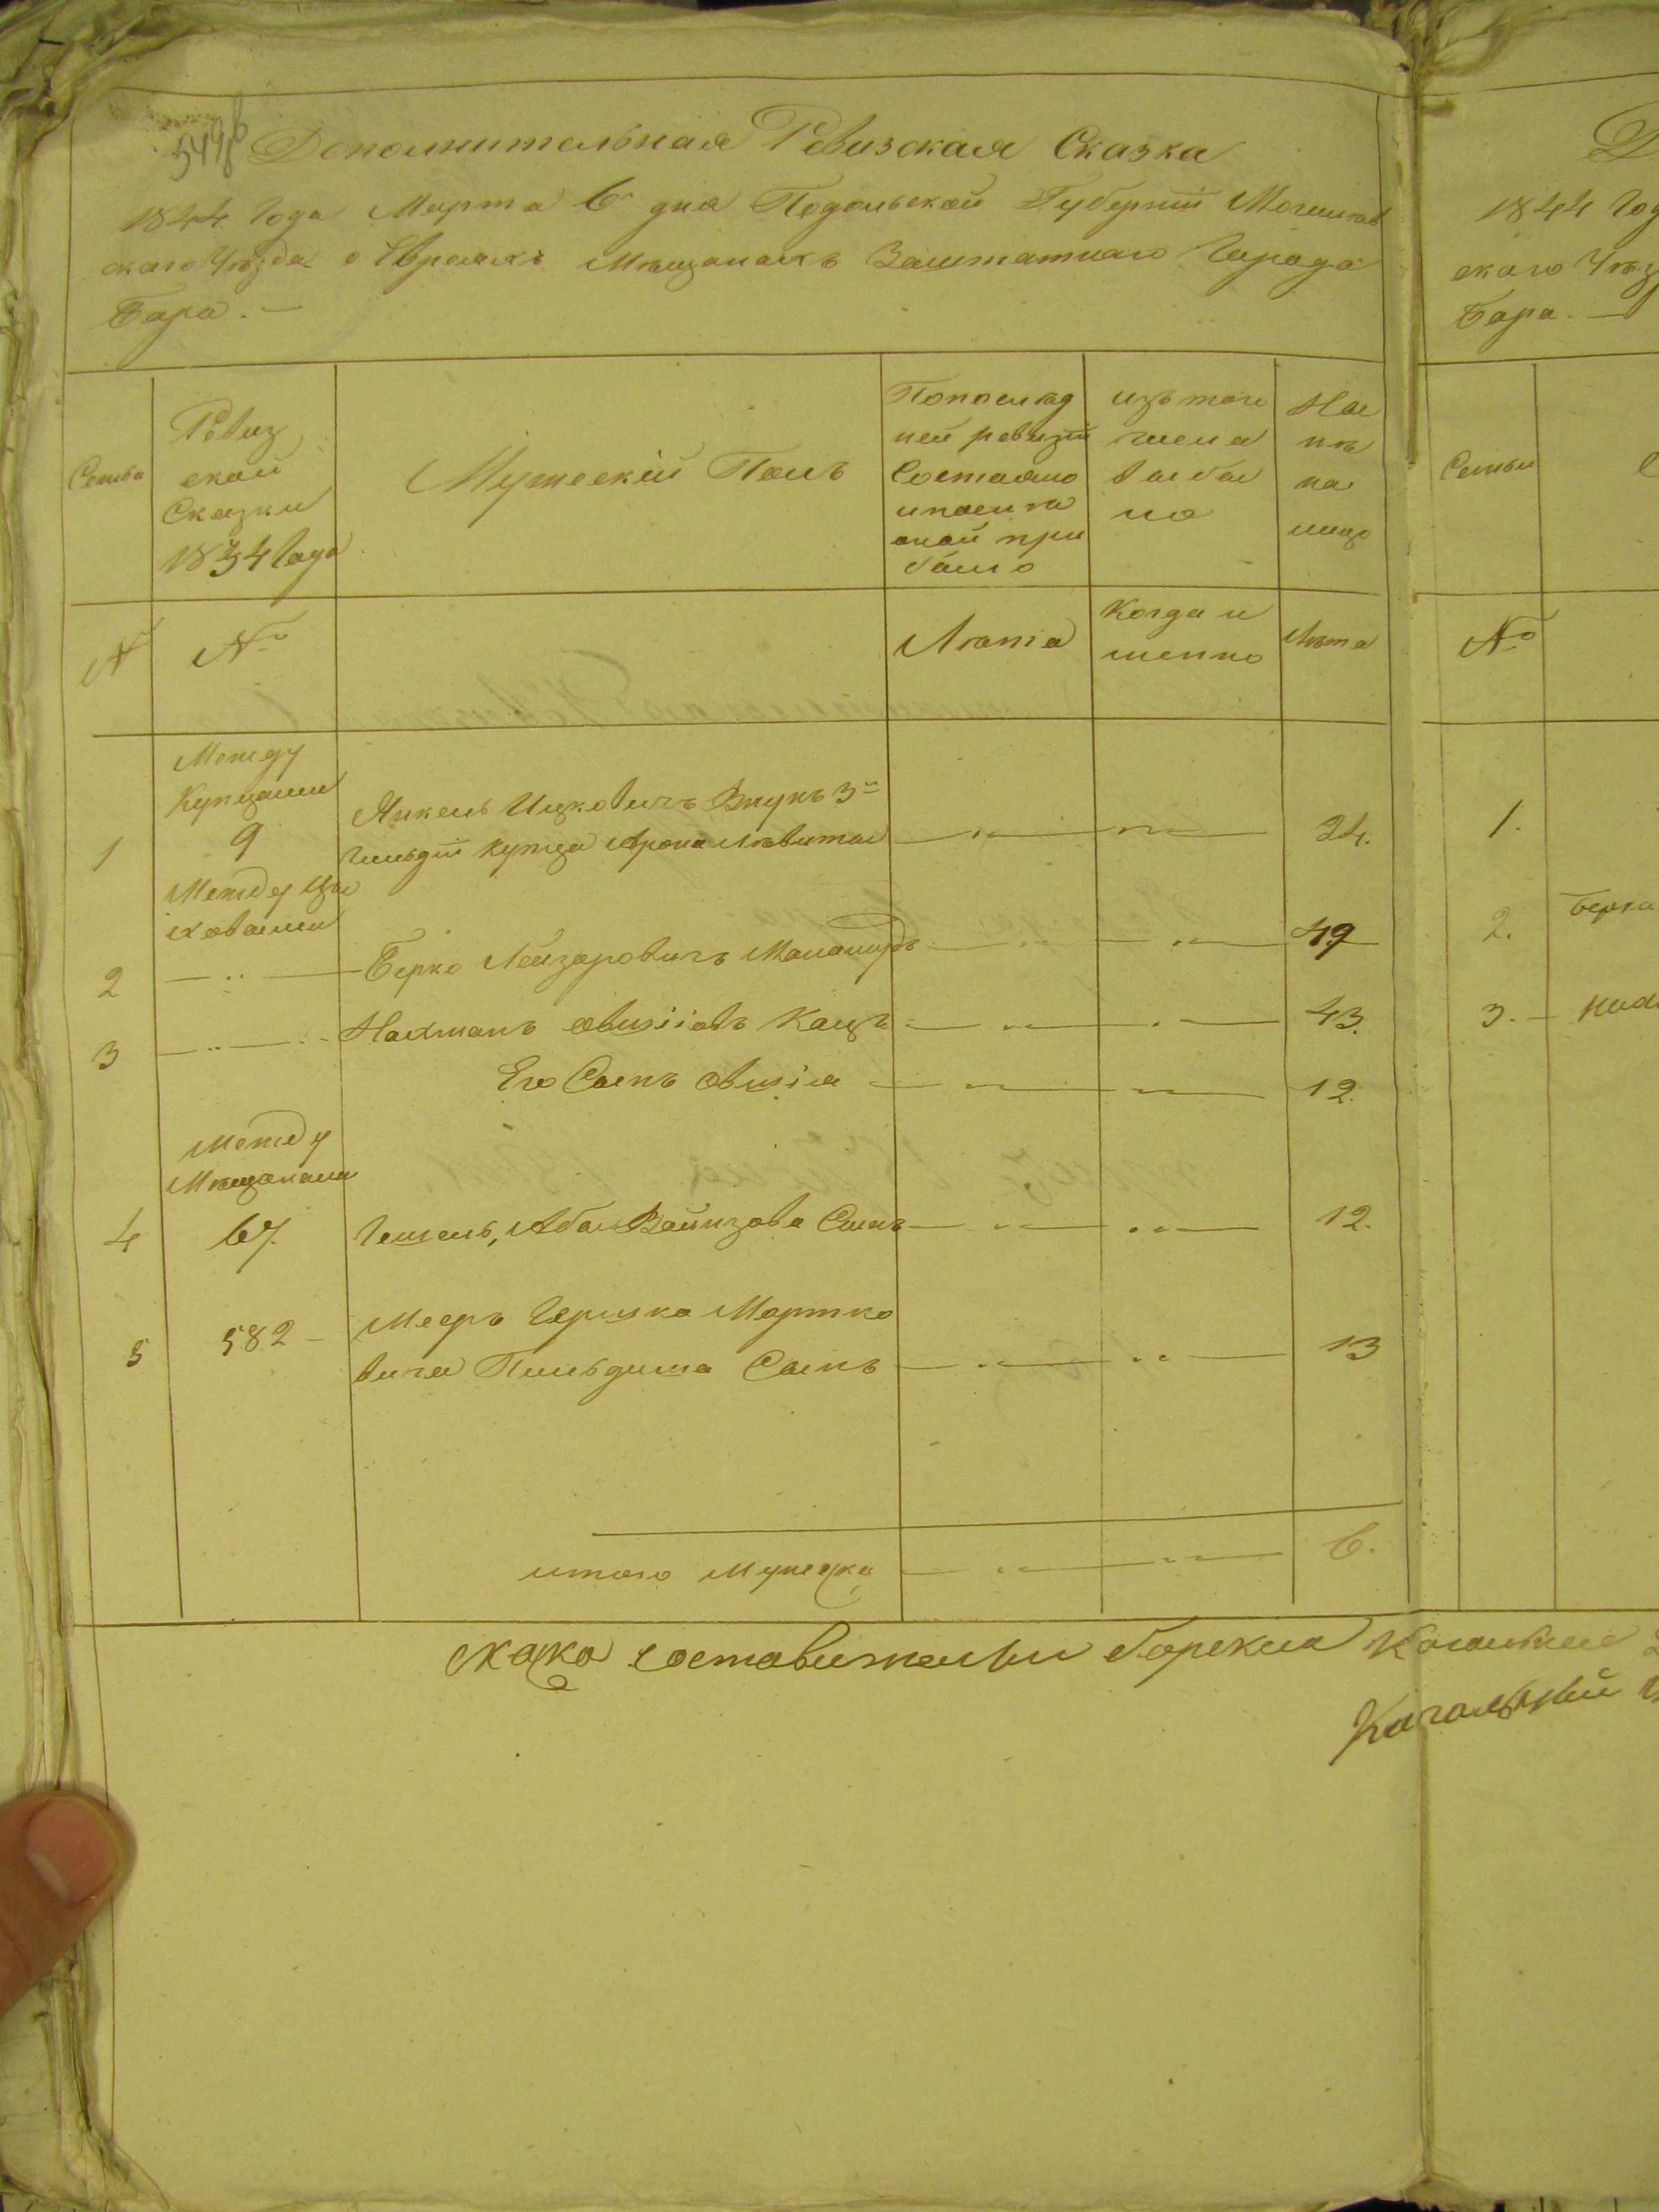 549б
Дополнительная Ревизская Сказка
1844 Года Марта 6 дня Подольской Губернiи Могилев
скаго Уѣзда о Евреяхъ Мѣщанахъ Заштатнаго Города
Бара. —
Семьи
Ревиз
ской
Сказки
1834 Года
Мужескiй Полъ
По послѣд
ней ревизiи
Состояло
и после
оной при
было
изъ того
числа
выбы
ло
Нае
лѣ
на
лицо
№
№
Лѣта
Когда и
менно
Лѣта
Между
Купцами
1 9 Янкель Ицковичъ Внукъ 3й
Гильдiи Купца Арона Левита 24.
Между Це
ховыми
2 Берко Лейзеровичъ 49
3 Нахманъ Овшiiовъ Кацъ 43.
Его Сынъ Овшiя 12.
Между
Мѣщанами
4 67. Гешель, Абы Вайнзова Сынъ 12.
5 582 Мееръ Гершка Мортко
вича Сынъ 13
итого Мужеска 6.
Скаска составители барскiя
Кагальный
Д
1844 Год
скаго Уѣз
Бара. —
Семьи
№
1.
2. Берка
3.